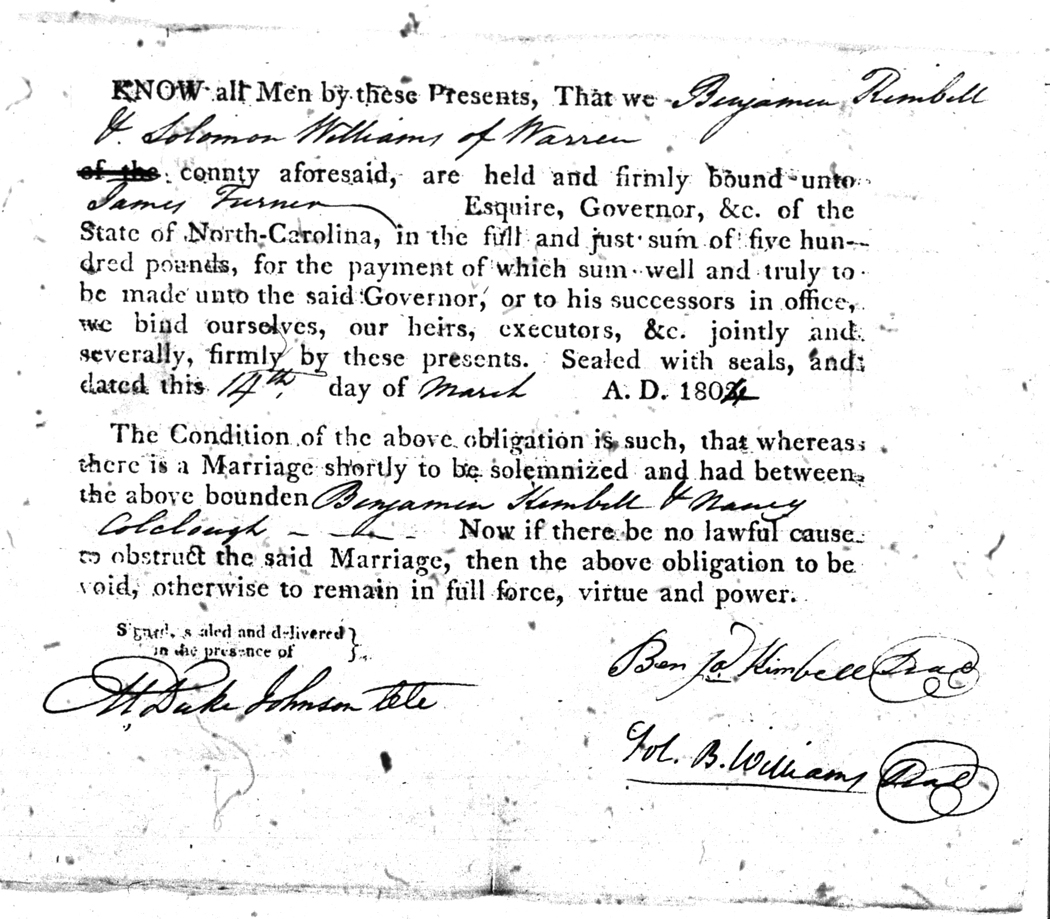 KNOW all Men by these Presents, That we Benjamen Kimbell
& Solomon Williams of Warren
of the county aforesaid, are held and firmly bound unto
James Turner Esquire, Governor, &c. of the
State of North-Carolina, in the full and just sum of five hun-
dred pounds, for the payment of which sum well and truly to
be made unto the said Governor, or to his successors in office,
we bind ourselves, our heirs, executors, &c. jointly and
severally, firmly by these presents. Sealed with seals, and
dated this 14th. day of March A. D. 1804
The Condition of the above obligation is such, that whereas
there is a Marriage shortly to be solemnized and had between
the above bounden Benjamen Kimbell & Nancy
Colclough - - - Now if there be no lawful cause
to obstruct the said Marriage, then the above obligation to be
void, otherwise to remain in full force, virtue and power.
Signed, sealed and delivered }
in the presence of }
Benja Kimbell Seal
M Duke Johnson
Sol. B. Williams Seal